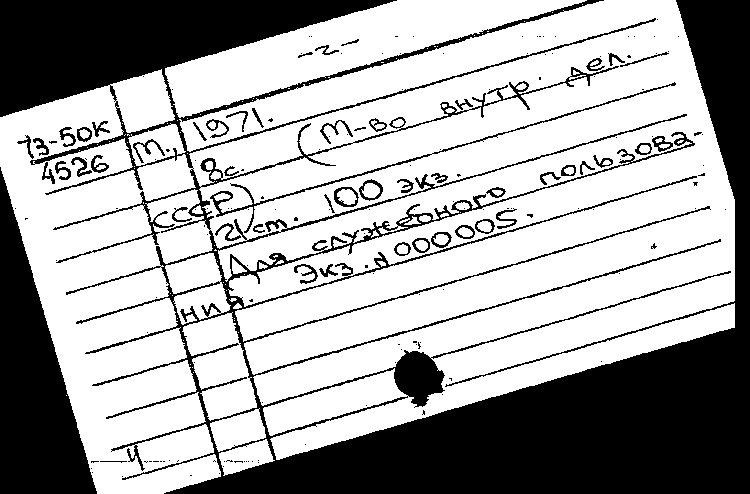 -2-
73-50К
4526
М., 1971.
8с. (М-во внутр. дел.
СССР).
21 ст. 100 экз.
Для служебного пользова-
ния. Экз. N 000005.
Ч